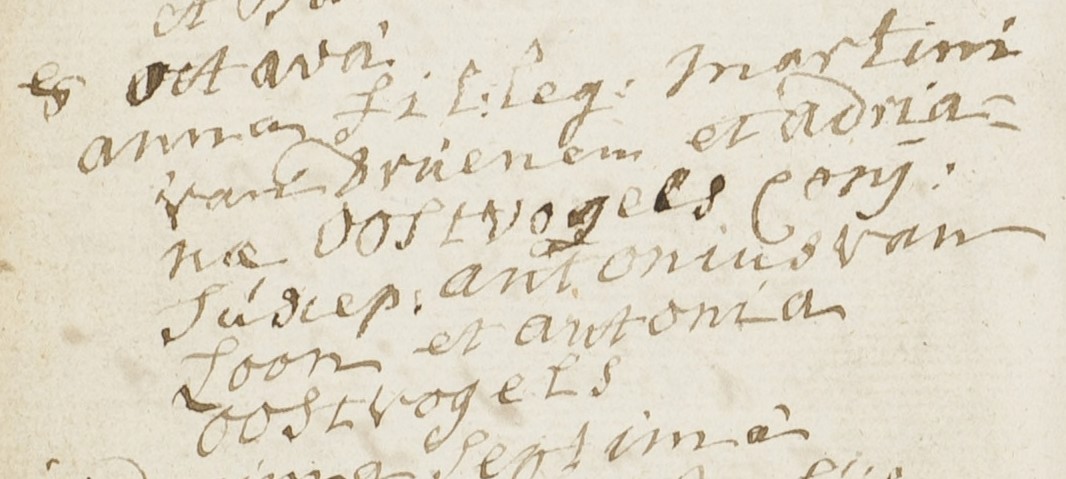 et
8 octava
anna fil: leg: Martini
van Druenen et adria=
næ Oostvogels conj:
Suscep: antonius van
Loon et antonia
oostvogels
septima